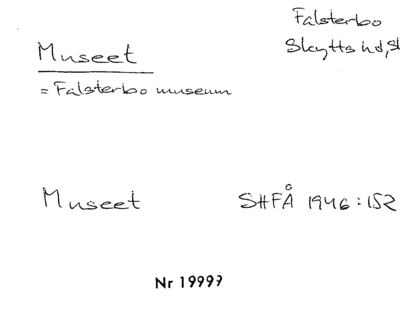 Falsterbo
Skytts hd, Sk
Museet
= Falsterbo museum
Museet SHFÅ 1946:152
Nr 19999